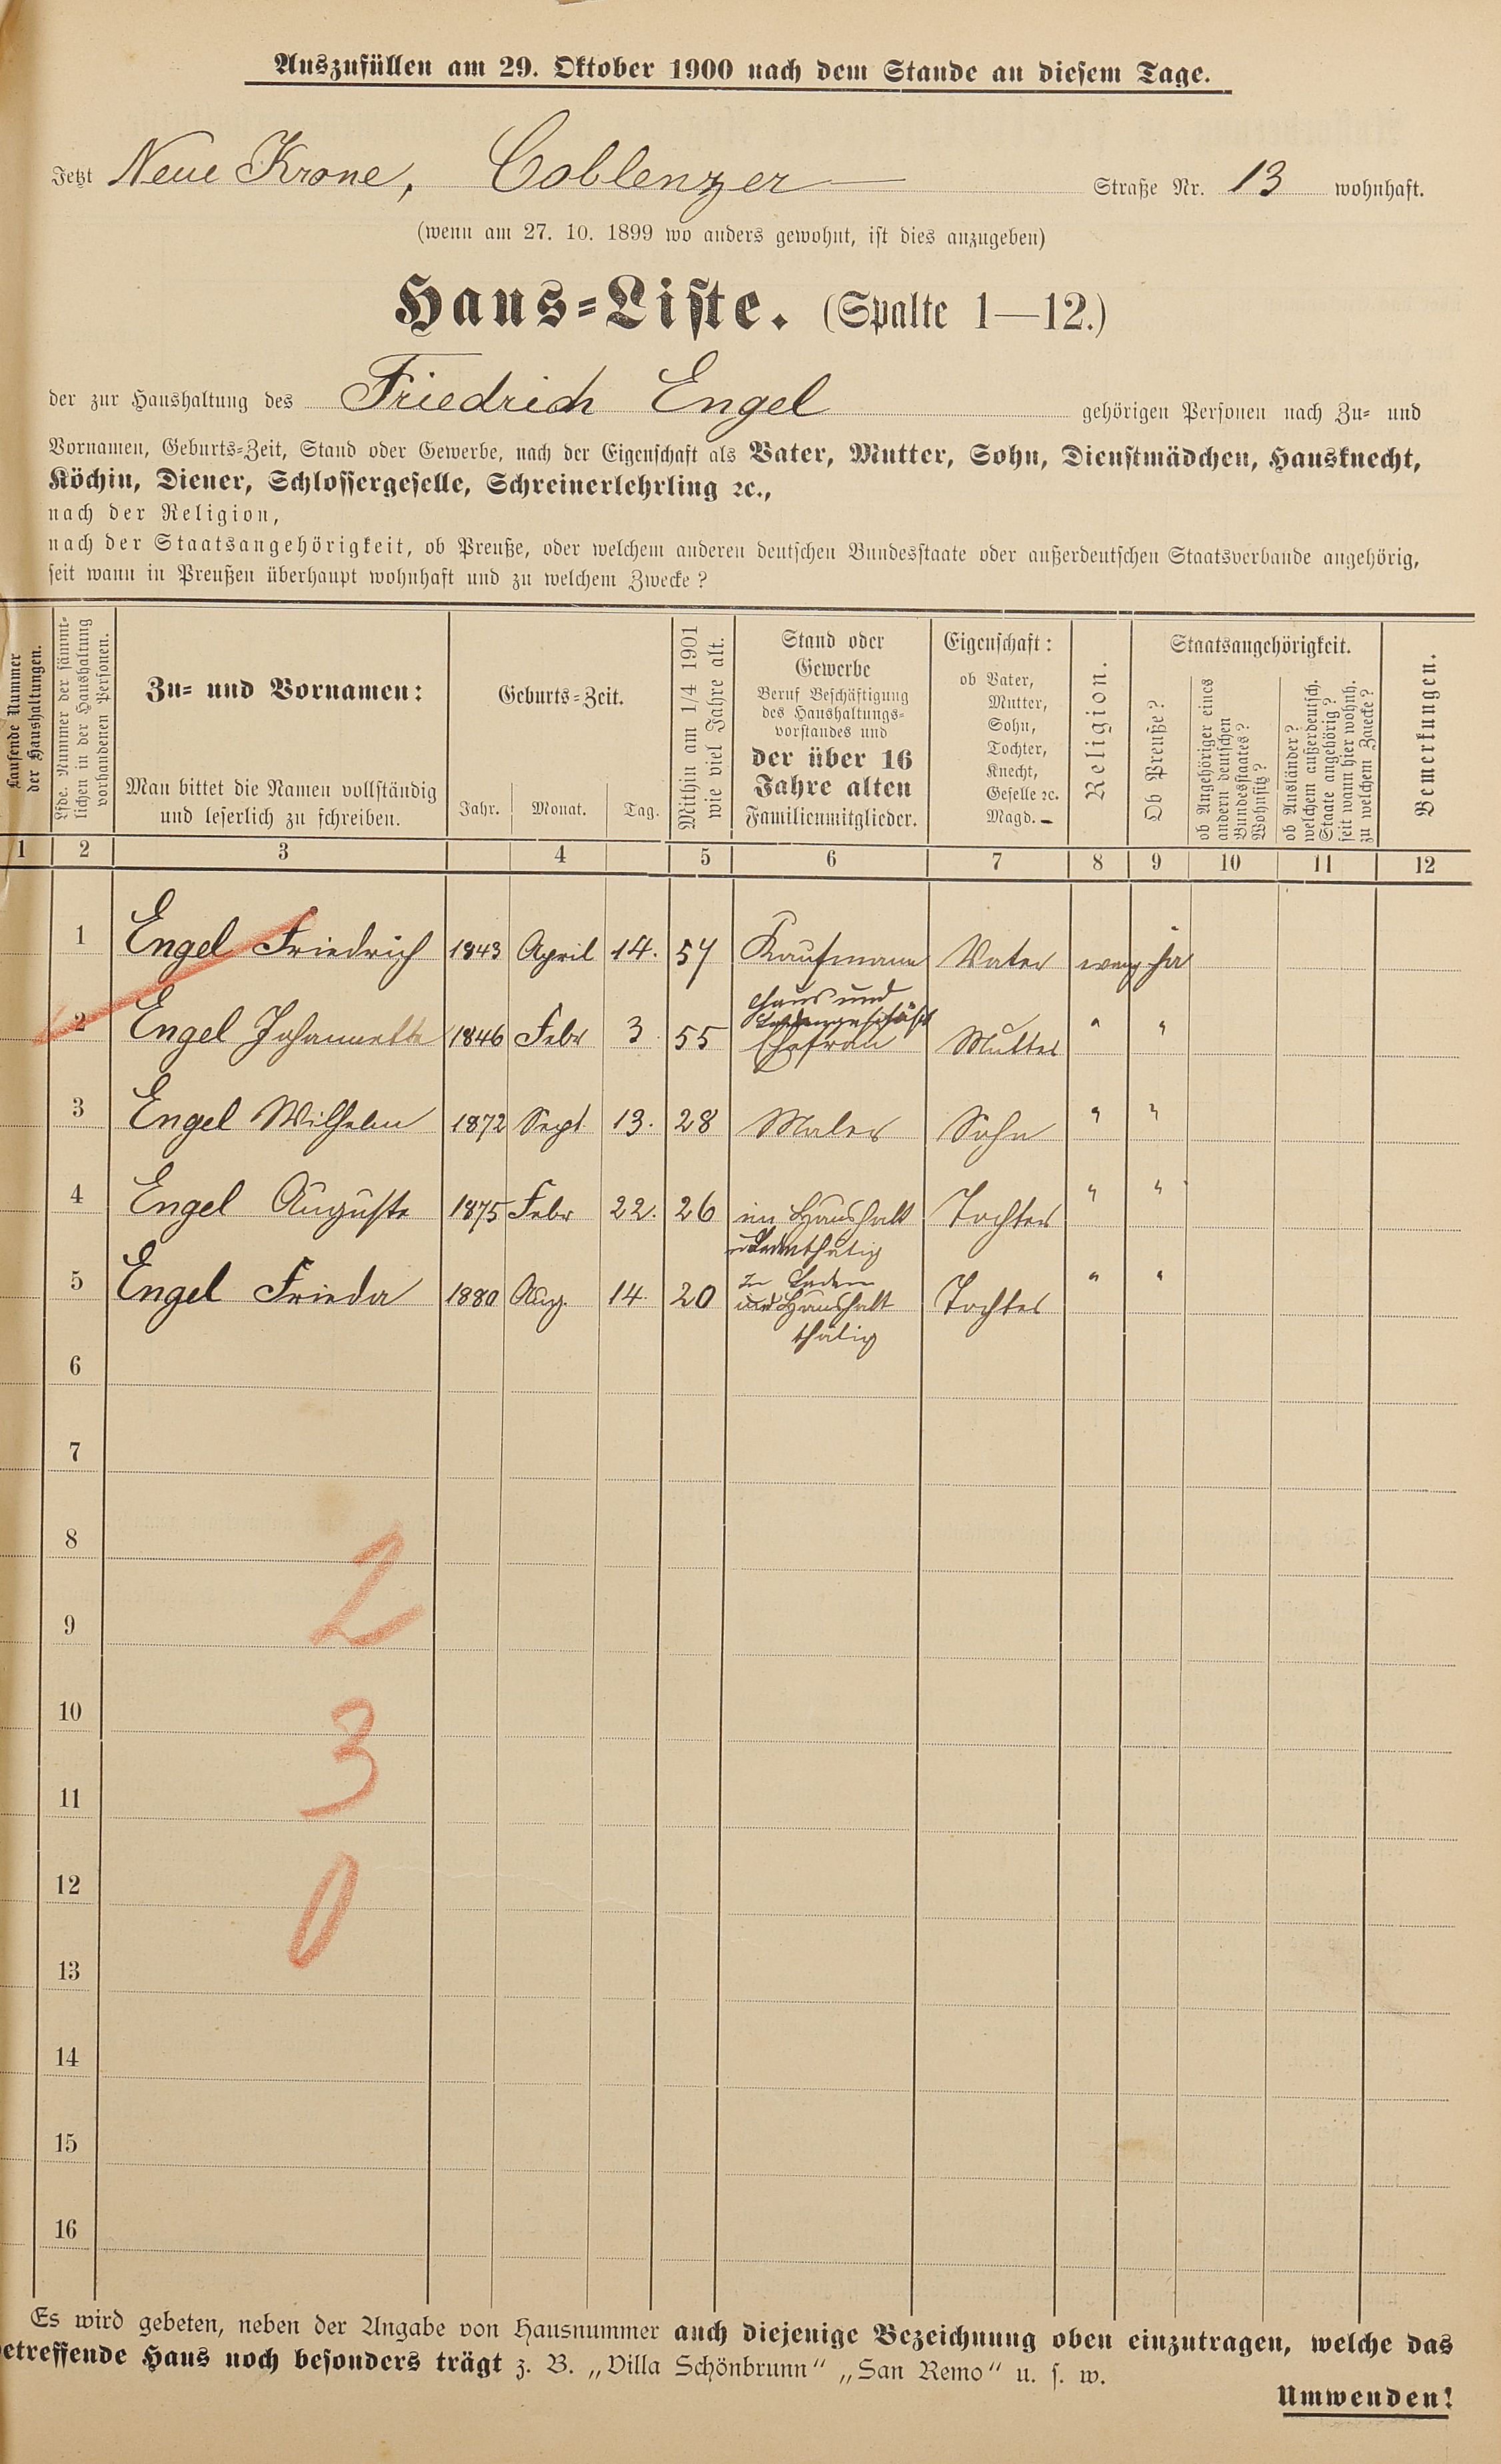 Auszufüllen am 29. Oktober 1900 nach dem Stande an diesem Tage.
Jetzt Neue Krone, Coblenzer Straße Nr. 13 wohnhaft.
(wenn am 27. 10. 1899 wo anders gewohnt, ist dies anzugeben)
Haus-Liste. (Spalte 1—12.)
der zur Haushaltung des Friedrich Engel gehörigen Personen nach Zu- und
Vornamen, Geburts-Zeit, Stand oder Gewerbe, nach der Eigenschaft als Vater, Mutter, Sohn, Dienstmädchen, Hausknecht,
Köchin, Diener, Schlossergeselle, Schreinerlehrling ꝛc.,
nach der Religion,
nach der Staatsangehörigkeit, ob Preuße, oder welchem anderen deutschen Bundesstaate oder außerdeutschen Staatsverbande angehörig,
seit wann in Preußen überhaupt wohnhaft und zu welchem Zwecke?
Laufende Nummer
der Haushaltungen.
Lfde. Nummer der sämmt-
lichen in der Haushaltung
vorhandenen Personen.
Zu- und Vornamen:
Man bittet die Namen vollständig
und leserlich zu schreiben.
Geburts-Zeit.
Jahr. Monat. Tag.
Mithin am 1/4 1901
wie viel Jahre alt.
Stand oder
Gewerbe
Beruf Beschäftigung
des Haushaltungs-
vorstandes und
der über 16
Jahre alten
Familienmitglieder.
Eigenschaft:
ob Vater,
Mutter,
Sohn,
Tochter,
Knecht,
Geselle ꝛc.
Magd.
Religion.
Staatsangehörigkeit.
Ob Preuße?
ob Angehöriger eines
andern deutschen
Bundesstaates?
Wohnsitz?
ob Ausländer?
welchem außerdeutsch.
Staate angehörig?
seit wann hier wohnh.
zu welchem Zwecke?
Bemerkungen.
1 2 3 4 5 6 7 8 9 10 11 12
1 Engel Friedrich 1843 April 14. 57 Kaufmann Vater evang ja
Haus und
Ladengeschäft
2 Engel Johannette 1846 Febr 3. 55 Ehefrau Mutter " "
3 Engel Wilhelm 1872 Sept 13. 28 Maler Sohn " "
4 Engel Auguste 1875 Febr 22. 26 im Haushalt Tochter " "
u Laden thätig
im Laden
5 Engel Frieda 1880 Aug. 14. 20 und Haushalt Tochter " "
thätig
6
7
8
2
9
10
3
11
12
0
13
14
15
16
Es wird gebeten, neben der Angabe von Hausnummer auch diejenige Bezeichnung oben einzutragen, welche das
betreffende Haus noch besonders trägt z. B. „Villa Schönbrunn" „San Remo" u. s. w.
Umwenden!